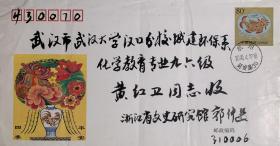 430070
80
武汉市武汉大学汉口分校城建环保系
化学教育专业九六级
黄红卫同志收
浙江省文史研究馆 郭仲选
邮政编码
310006